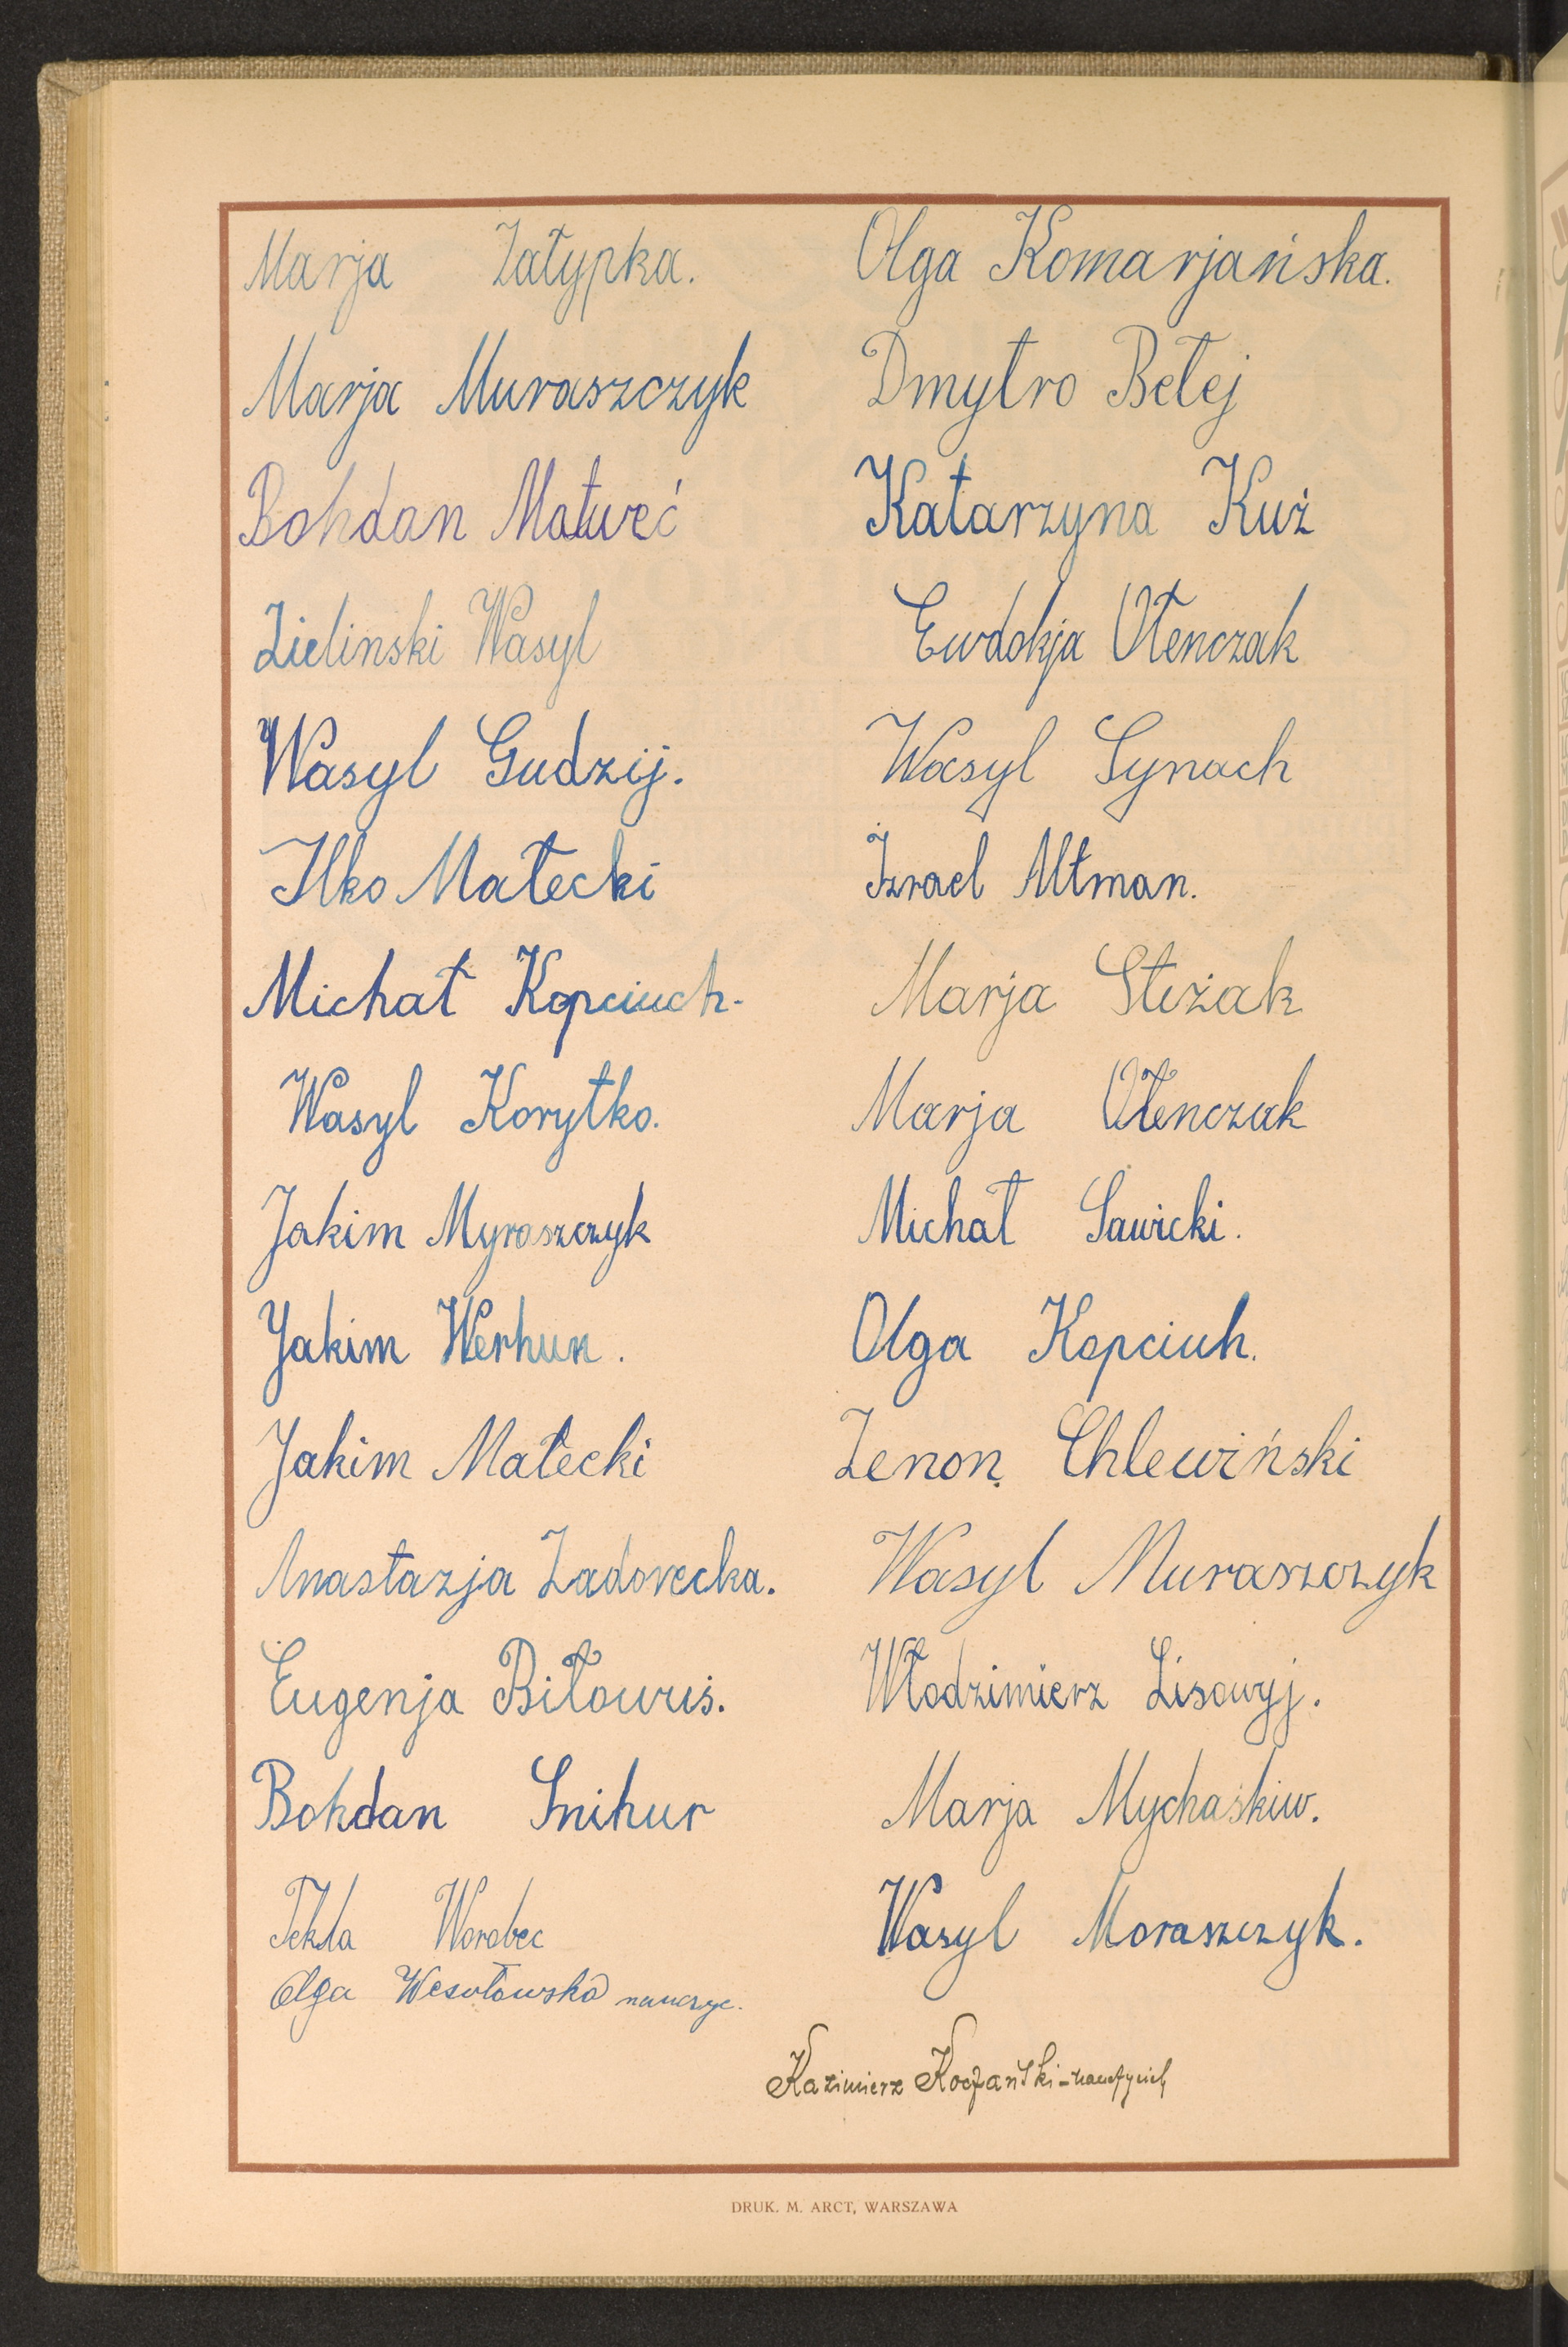 Marja Załypka.
Marja Muraszczyk
Bohdan Matweć
Zielinski Wasyl
Wasyl Gudzij.
Ilko Małecki
Michał Kopciuch.
Wasyl Korytko.
Jakim Myraszczyk
Yakim Werhun.
Yakim Małecki
Anastazja Zadorecka.
Eugenja Biłowus.
Bohdan Snihur
Tekla Worobec
Olga Wesołowska nauczyc.
Olga Komarjańska.
Dmytro Bełej
Katarzyna Kuż
Ewdokja Ołenczak
Wasyl Synach
Izrael Altman.
Marja Steżak
Marja Ołenczak
Michał Sawicki.
Olga Kopciuh.
Zenon Chlewiński
Wasyl Muraszczyk
Włodzimierz Lisowyj.
Marja Mychaśkiw.
Wasyl Moraszczyk.
Kazimierz Koczański - nauczyciel
DRUK. M. ARCT, WARSZAWA